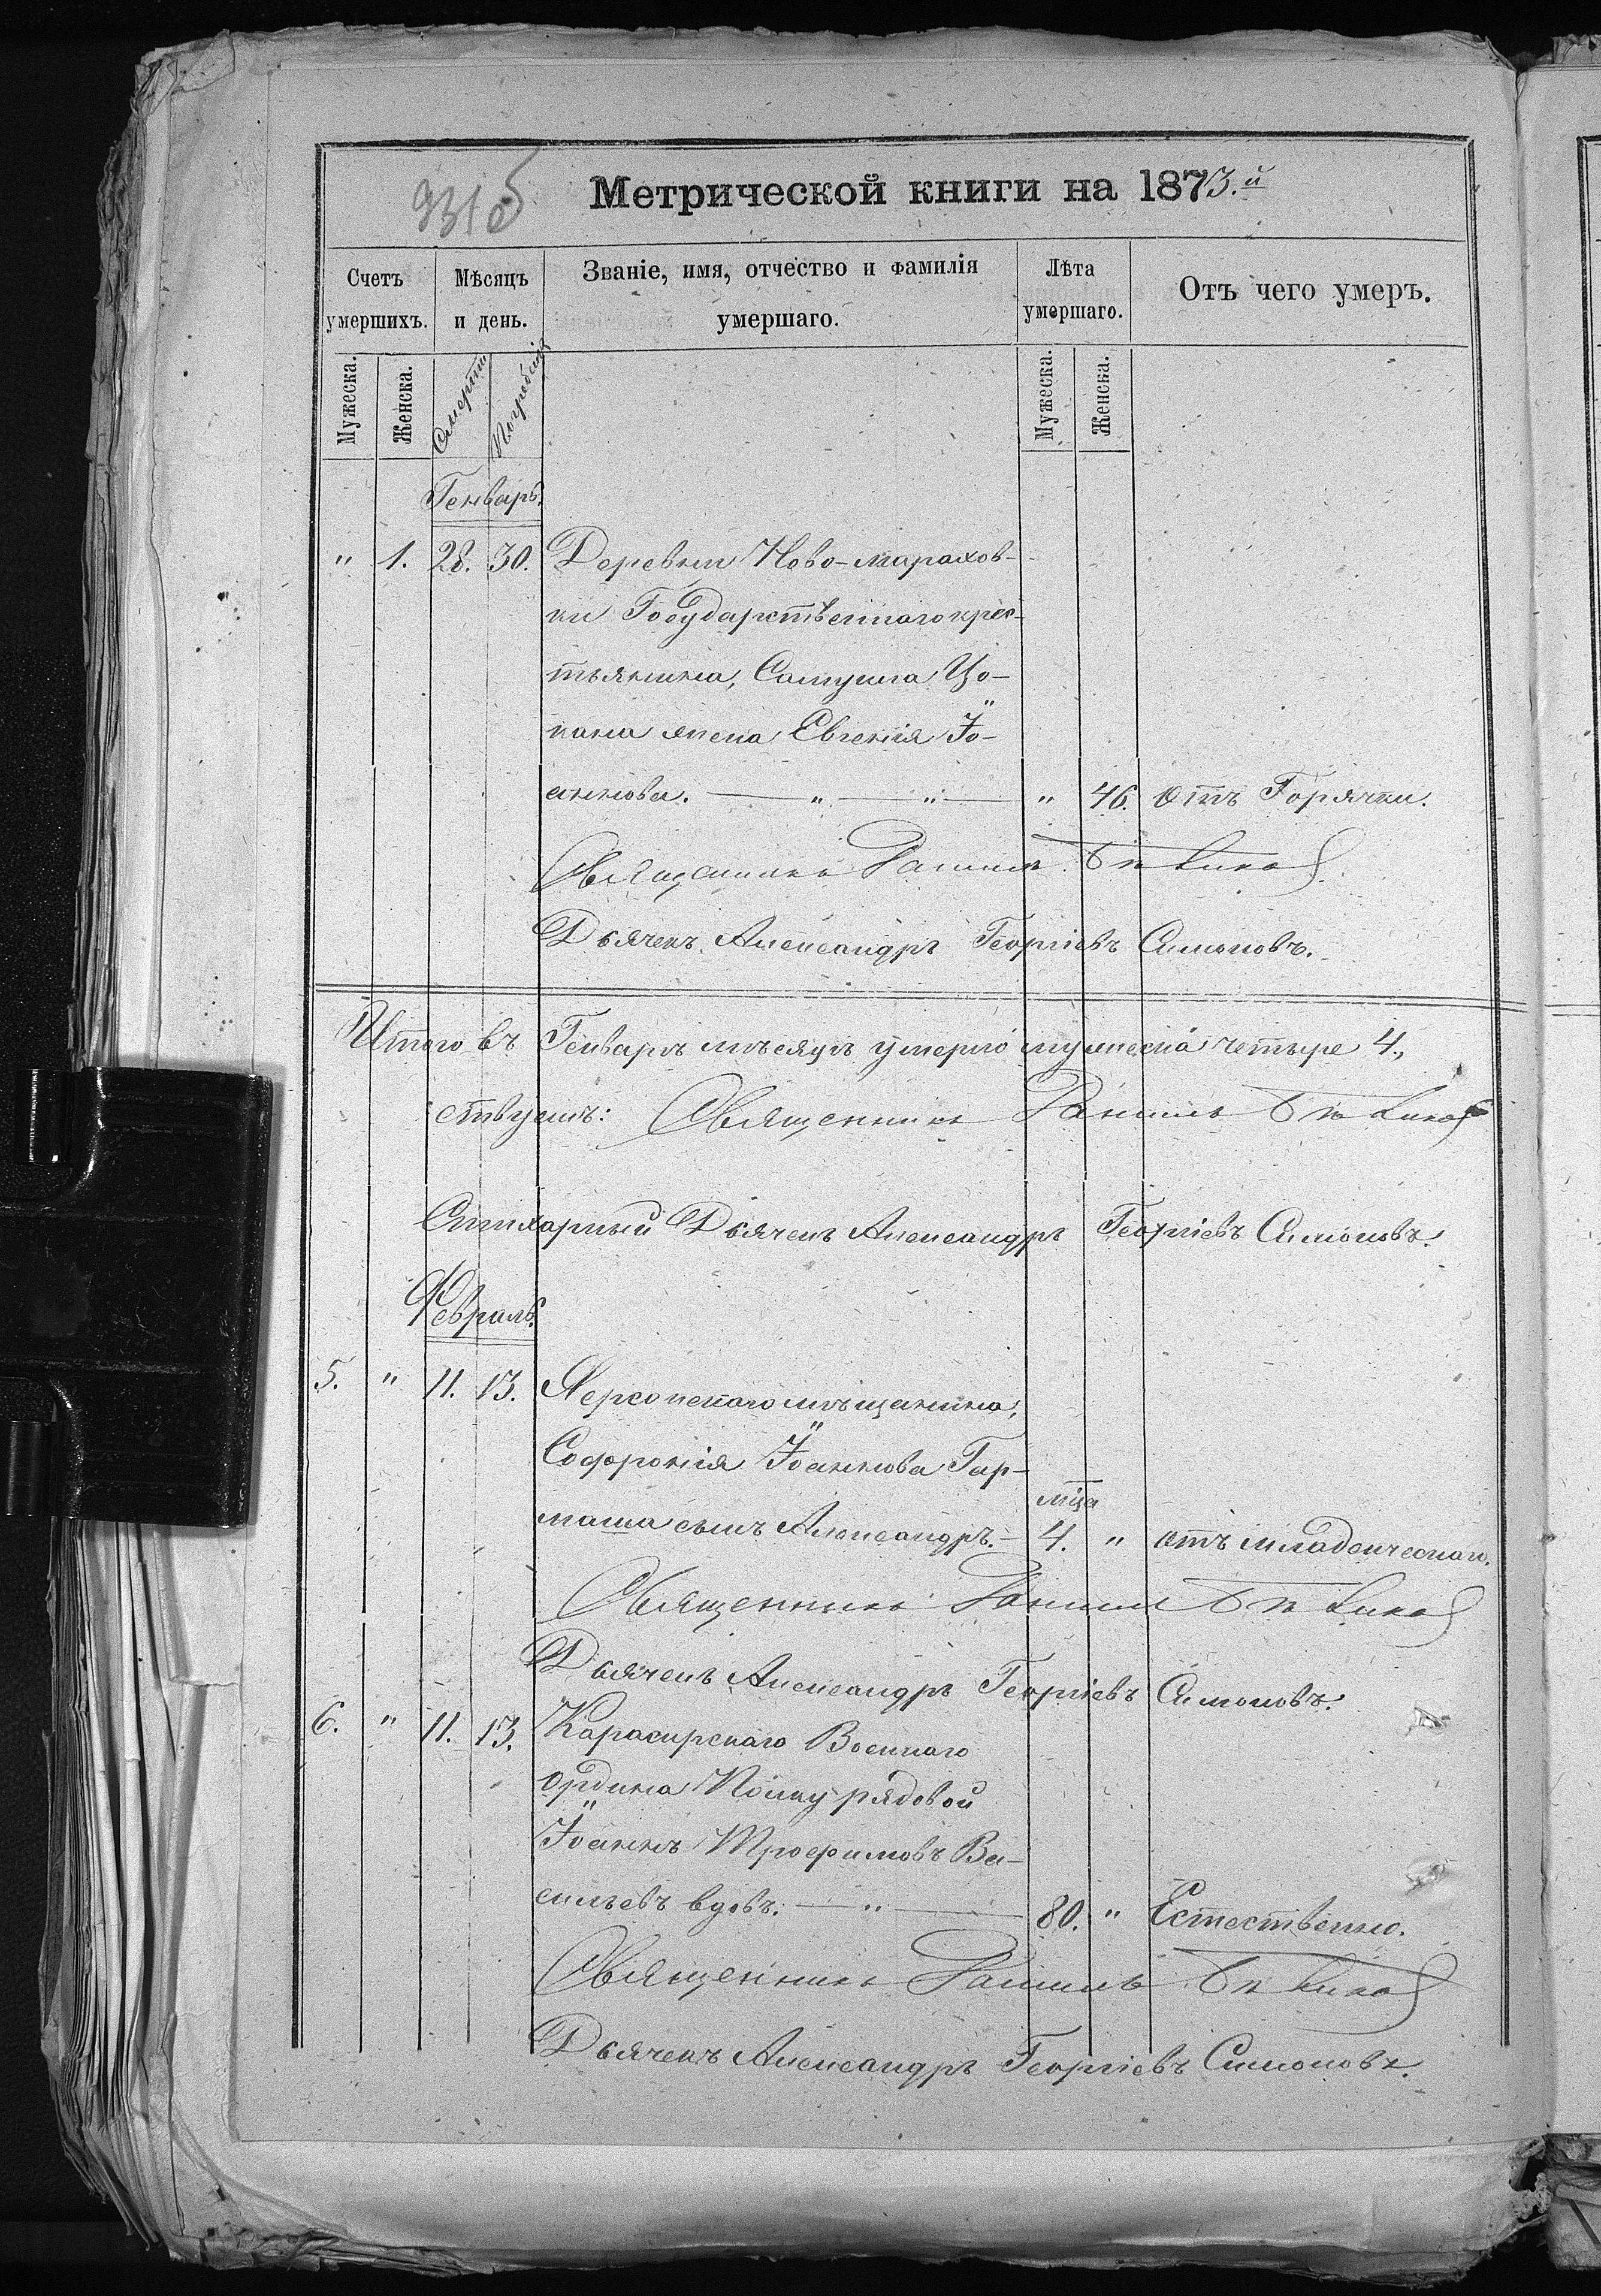 931 об
Метрической книги на 1873.й
Счетъ умершихъ.
Мѣсяцъ и день.
Званіе, имя, отчество и фамилія умершаго.
Лѣта умершаго.
Отъ чего умеръ.
Мужеска. Женска. Смерти Погребенія Мужеска. Женска.
Генварь.
" 1. 28. 30. Деревни Ново-марахов-
ки Государственнаго крес-
тьянина, Самуила Цо-
кана жена Евгенія Іо-
аннова. — " — " — " 46. отъ Горячки.
Священникъ Даніилъ
Дьячекъ Александръ Георгіевъ Симоновъ.
Итого въ Генварѣ мѣсяцѣ умерло мужеска четыре 4.,
ствуемъ: Священникъ Даніилъ
Стихарный Дьячекъ Александръ Георгіевъ Симоновъ.
Февраль.
5. " 11. 13. Херсонскаго мѣщанина,
Софронія Іоаннова Гар-
маша сынъ Александръ. — мца 4. " отъ младенческаго.
Священникъ Даніилъ
Дьячекъ Александръ Георгіевъ Симоновъ.
6. " 11. 13. Карасирскаго Военнаго
ордина Полку рядовой
Іоаннъ Трофимовъ Ва-
сильевъ вдовъ. — " — 80. " Естественно.
Священникъ Даніилъ
Дьячекъ Александръ Георгіевъ Симоновъ.